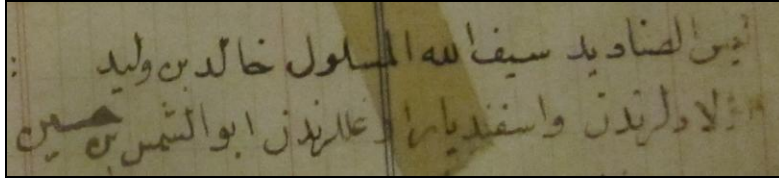 الصناديد سيف الله المسلول خالد بن وليد :
اولادلرندن واسفنديار اوغللرندن ابو الشمس بن حسين